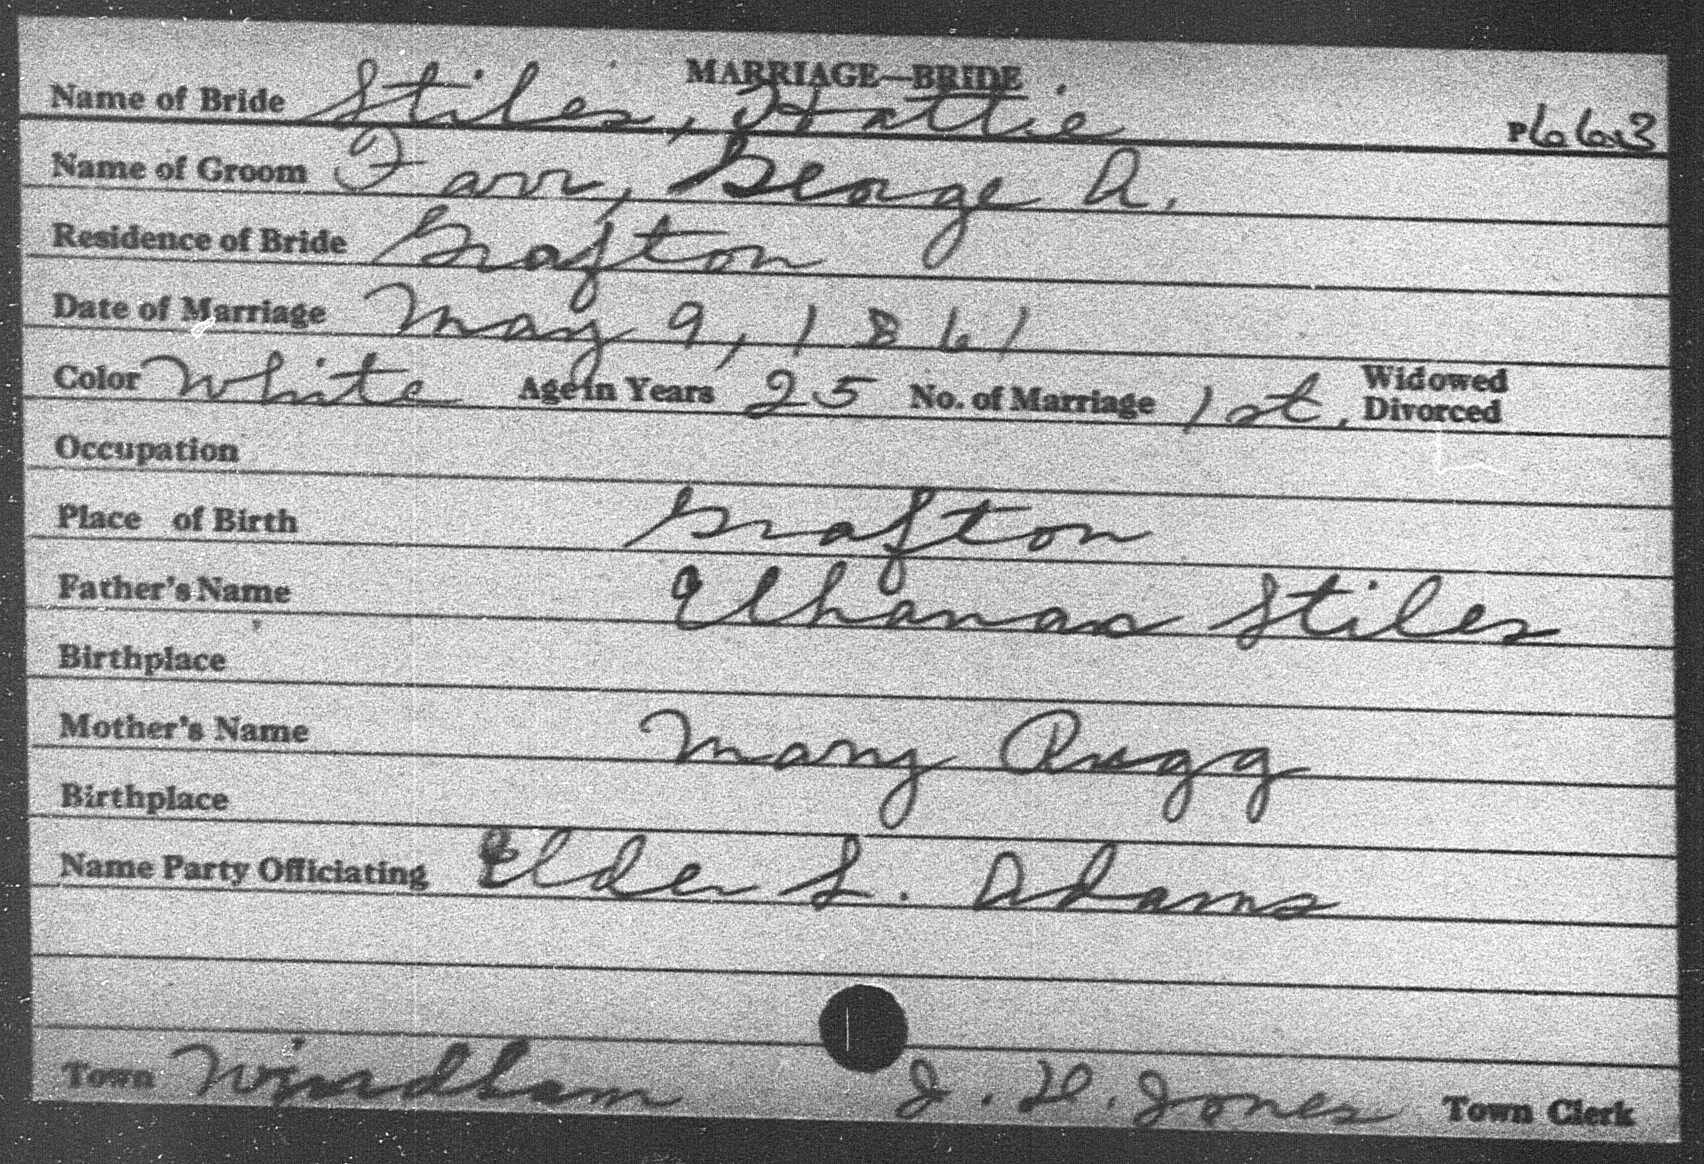 MARRIAGE—BRIDE
Name of Bride Stiles, Hattie P663
Name of Groom Farr, George A.
Residence of Bride Grafton
Date of Marriage May 9, 1861
Color White Age in Years 25 No. of Marriage 1st. Widowed Divorced
Occupation
Place of Birth Grafton
Father's Name Elhanan Stiles
Birthplace
Mother's Name Mary Rugg
Birthplace
Name Party Officiating Elder L. Adams
Town Windham J. H. Jones Town Clerk